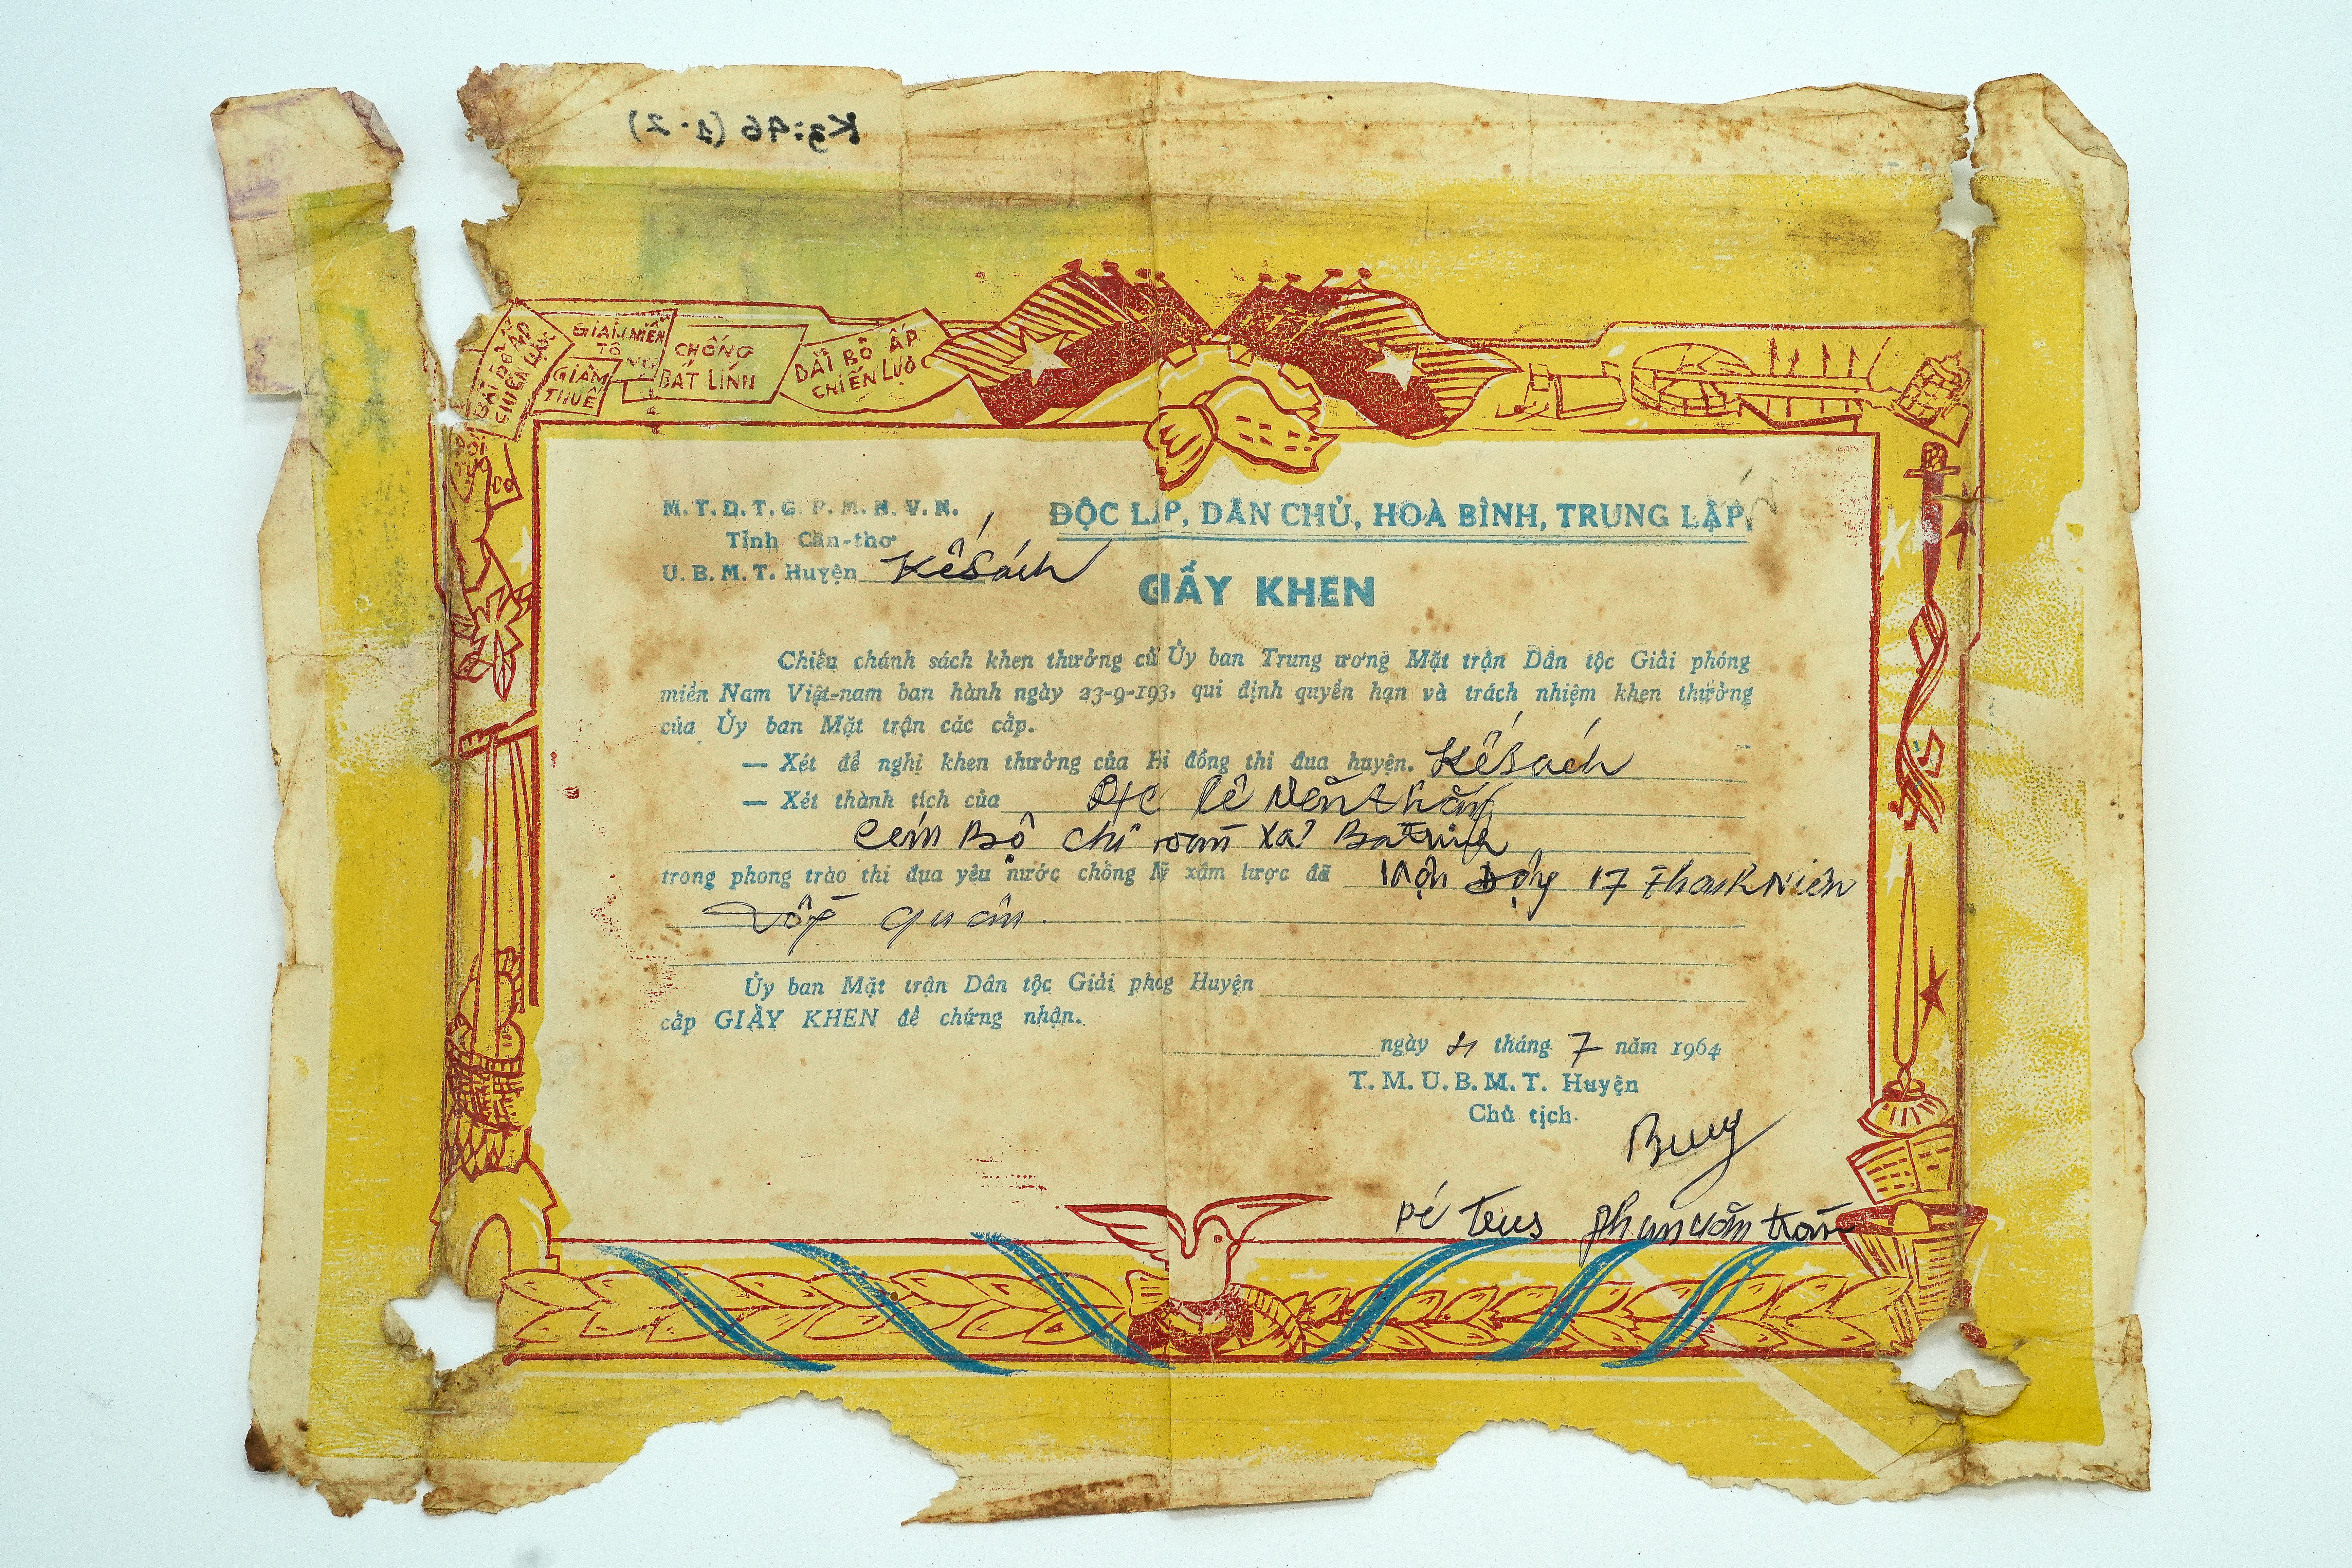 Kg:96 (1.2)
BÃI BỎ ẤP
CHIẾN LƯỢC
GIẢM MIỄN
TÔ
GIẢM
THUẾ
CHỐNG
BẮT LÍNH
BÃI BỎ ẤP
CHIẾN LƯỢC
M. T. D. T. G. P. M. N. V. N.
ĐỘC LẬP, DÂN CHỦ, HOÀ BÌNH, TRUNG LẬP
Tỉnh Cần-thơ
U. B. M. T. Huyện Kế Sách
GIẤY KHEN
Chiếu chánh sách khen thưởng củ Ủy ban Trung ương Mặt trận Dân tộc Giải phóng
miền Nam Việt-nam ban hành ngày 23-9-193, qui định quyền hạn và trách nhiệm khen thưởng
của Ủy ban Mặt trận các cấp.
— Xét đề nghị khen thưởng của Hi đồng thi đua huyện. Kế Sách
— Xét thành tích của Đ/c Lê Văn Thắng
Cán Bộ chi đoàn xã Ba Trinh
trong phong trào thi đua yêu nước chống Mỹ xâm lược đã Vận Động 17 Thanh Niên
tòng quân.
Ủy ban Mặt trận Dân tộc Giải phóg Huyện
cấp GIẤY KHEN để chứng nhận.
ngày tháng 7 năm 1964
T. M. U. B. M. T. Huyện
Chủ tịch
phan văn